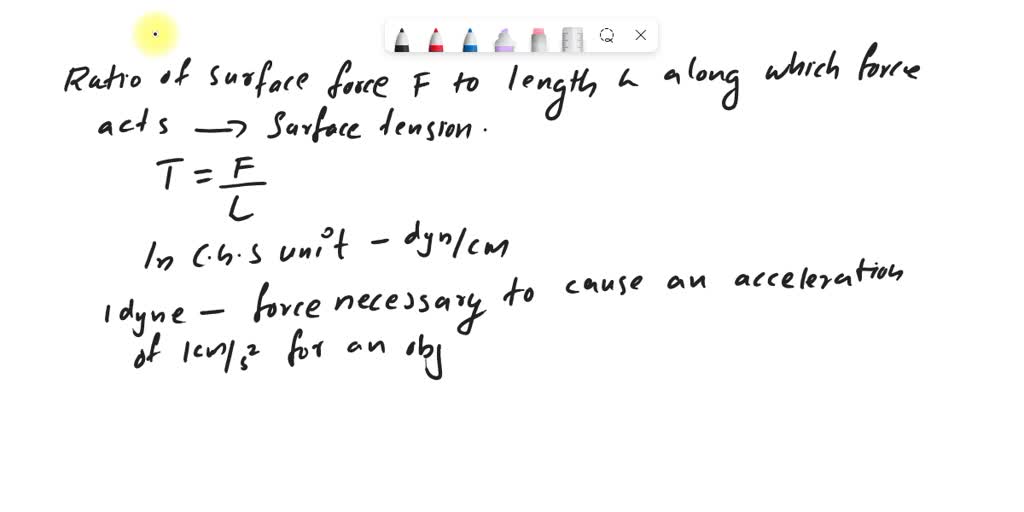 Ratio of surface force F to length L along which force
acts → Surface tension.
T = F/L
In C.G.S unit - dyn/cm
1dyne - force necessary to cause an acceleration
of 1cm/s² for an obj